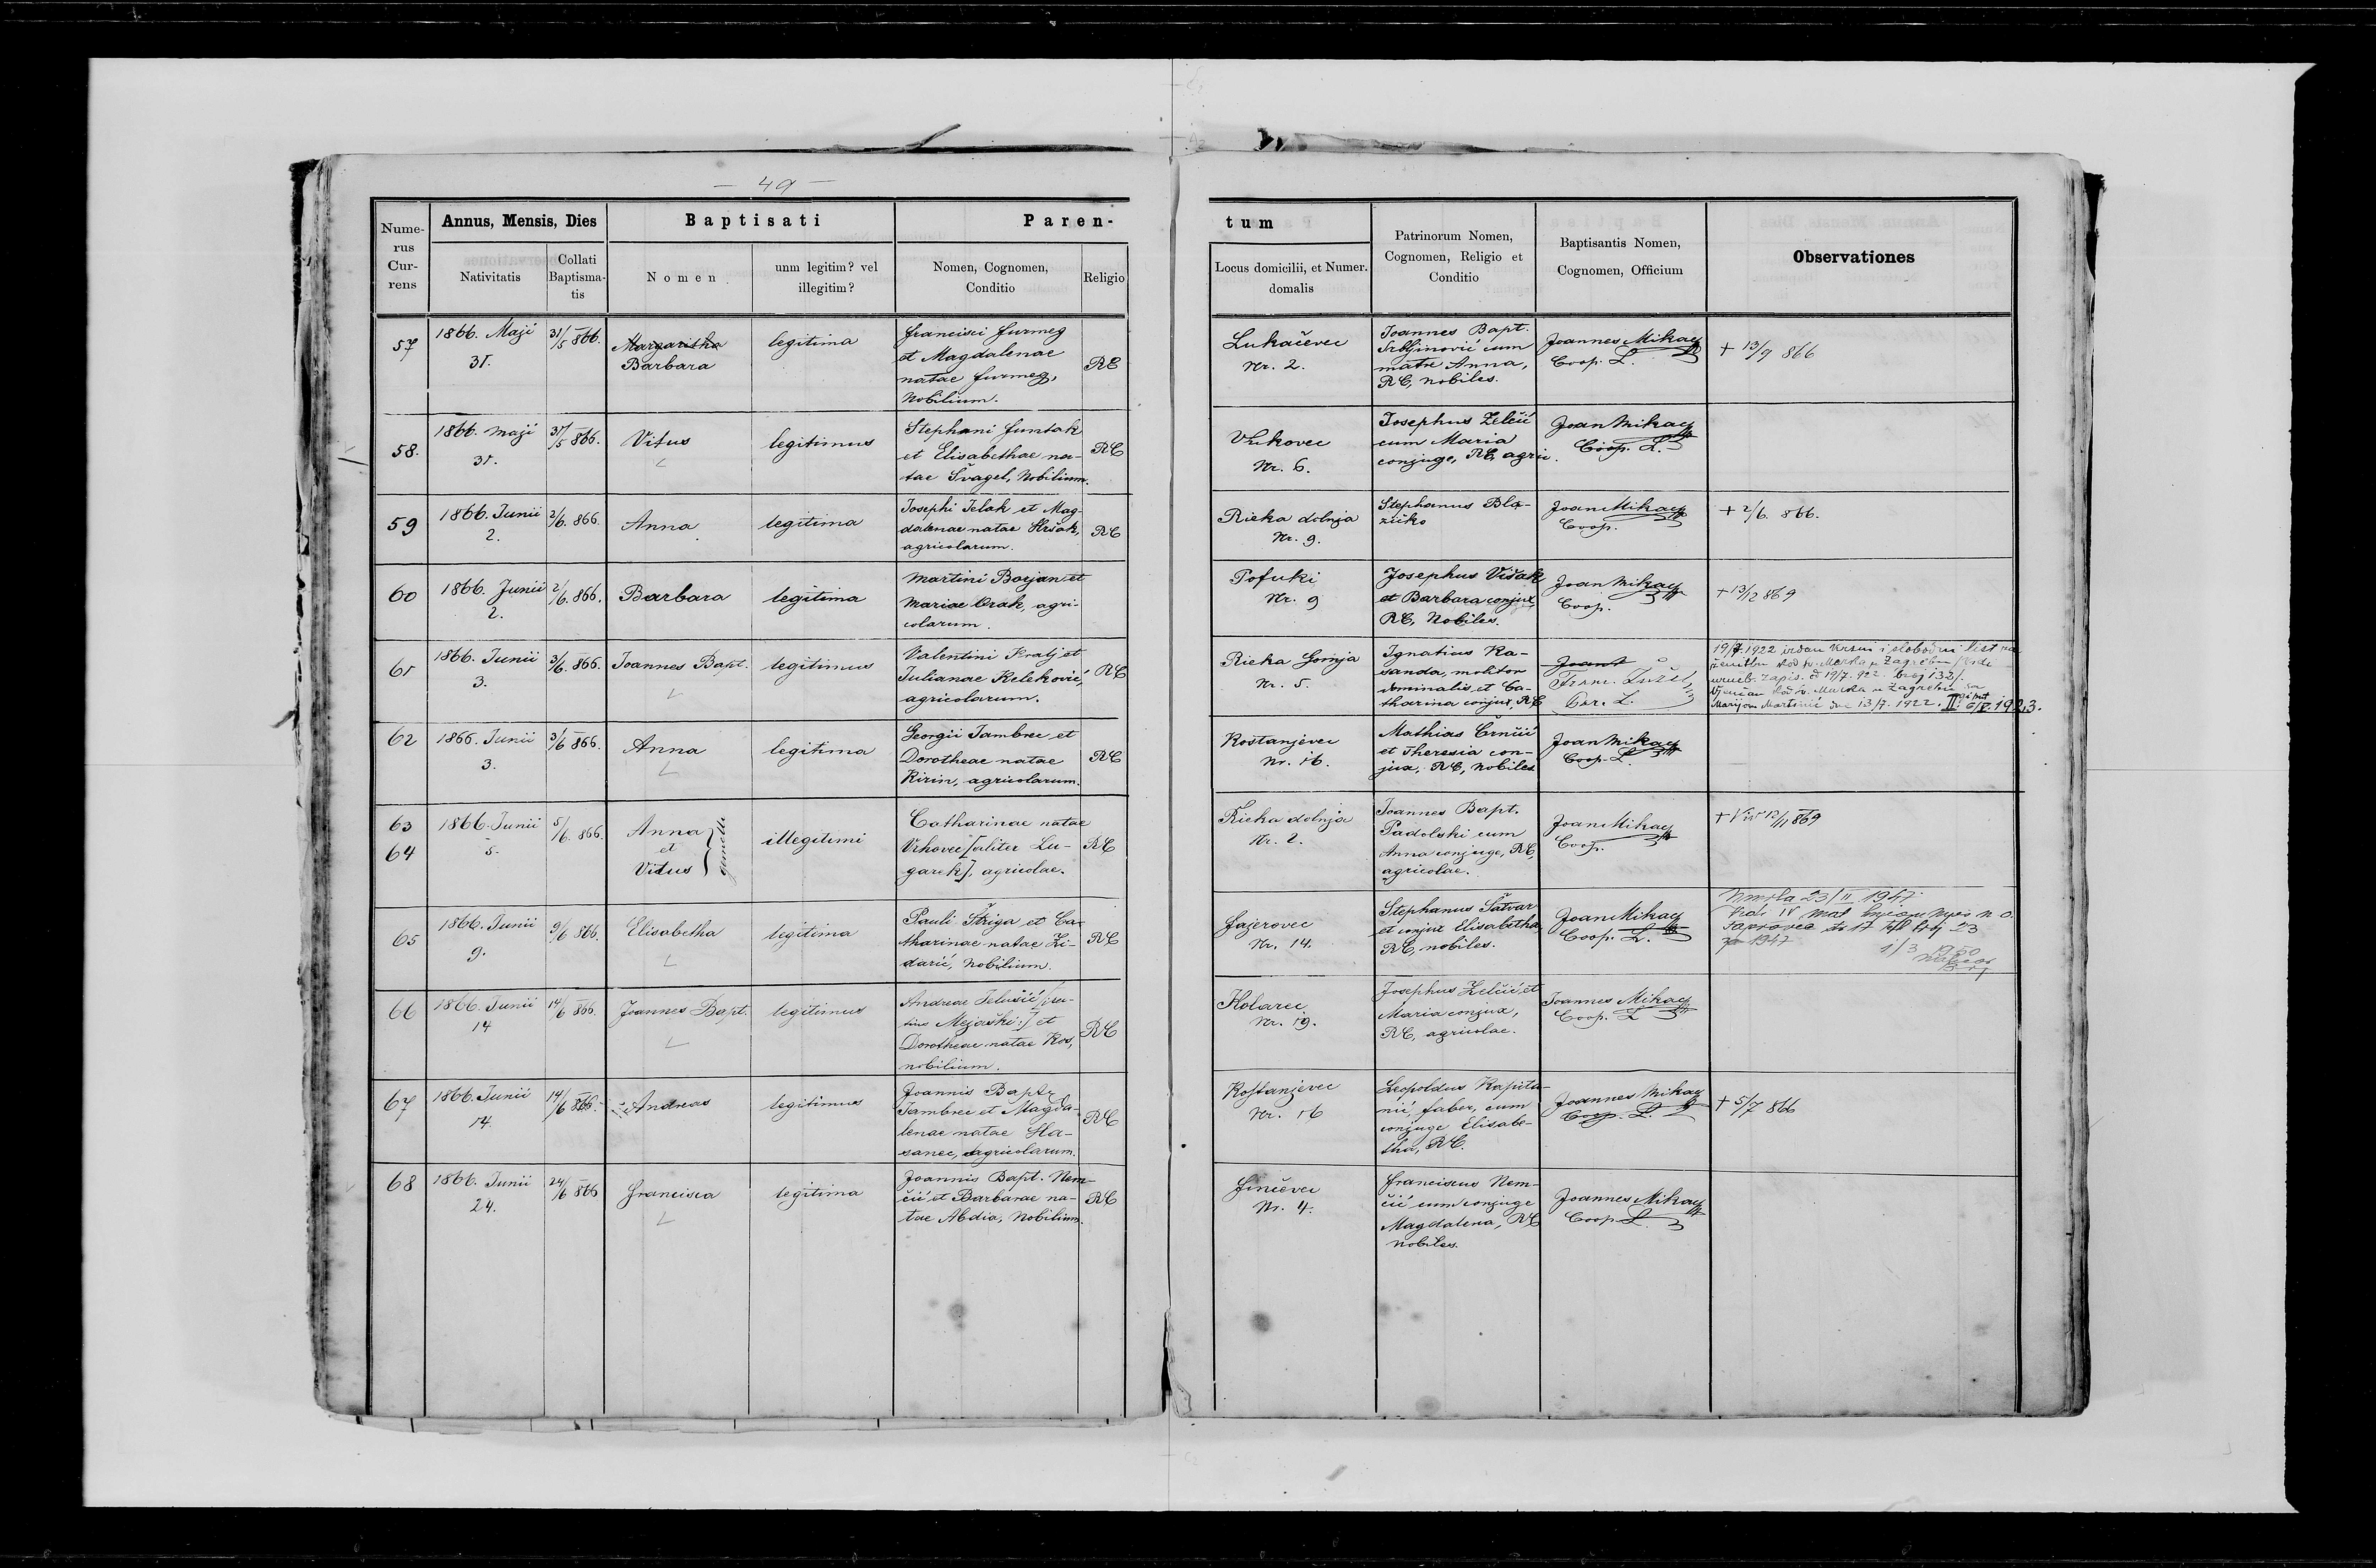 — 49 —
Numerus Currens
Annus, Mensis, Dies
Nativitatis
Collati Baptismatis
Baptisati
Nomen
unm legitim? vel illegitim?
Parentum
Nomen, Cognomen, Conditio
Religio
Locus domicilii, et Numer. domalis
Patrinorum Nomen, Cognomen, Religio et Conditio
Baptisantis Nomen, Cognomen, Officium
Observationes
57
1866. Maji
31.
31/5 866.
Margaritha
Barbara
legitima
Francisci Furmeg
et Magdalenae
natae Furmeg,
Nobilium.
RC
Lukačevec
Nr. 2.
Joannes Bapt.
Srbljinović cum
matre Anna,
RC, nobiles.
Joannes Mikacz
Coop. L.
+ 13/9 866
58.
1866. Maji
31.
31/5 866.
Vitus
legitimus
Stephani Funtak
et Elisabethae na-
tae Švagel, Nobilium.
RC
Vukovec
Nr. 6.
Josephus Zelčić
cum Maria
conjuge, RC, agric.
Joan Mikacz
Coop. L.
59
1866. Junii
2.
2/6. 866.
Anna
legitima
Josephi Jelak et Mag-
dalenae natae Hršak,
agricolarum.
RC
Rieka dolnja
Nr. 9.
Stephanus Bla-
žičko
Joan Mikacz
Coop.
+ 2/6. 866.
60
1866. Junii
2.
2/6. 866.
Barbara
legitima
Martini Borjan et
Mariae Orak, agri-
colarum.
Pofuki
Nr. 9
Josephus Višak
et Barbara conjux,
RC, Nobiles.
Joan Mikacz
Coop.
+ 13/12 869
61
1866. Junii
3.
3/6. 866.
Joannes Bapt.
legitimus
Valentini Kralj et
Julianae Keleković,
agricolarum.
RC
Rieka Gornja
Nr. 5.
Ignatius Ka-
sanda, molitor
dominalis, et Ca-
tharina conjux, RC
Joann
Franc. Lužel
Par. L.
19/7. 1922 izdan krsni i slobodni list na
ženitbu kod sv. Marka u Zagrebu
zapis. od 19/7. 922. broj 132/.
Vjenčan kod sv. Marka u Zagrebu sa
Marijom Martinić dne 13/7. 1922. II. put 6/V. 1923.
62
1866. Junii
3.
3/6 866.
Anna
legitima
Georgii Jambrec et
Dorotheae natae
Kirin, agricolarum.
RC
Kostanjevec
Nr. 16.
Mathias Črnčić
et Theresia con-
jux, RC, nobiles
Joan Mikacz
Coop. L.
63
64
1866. Junii
5.
5/6. 866.
Anna
et
Vitus
gemelli
illegitimi
Catharinae natae
Vrhovec [aliter Lu-
garek], agricolae.
RC
Rieka dolnja
Nr. 2.
Joannes Bapt.
Padolski cum
Anna conjuge, RC,
agricolae.
Joan Mikacz
Coop.
+ Vit 12/11 869
65
1866. Junii
9.
9/6 866.
Elisabetha
legitima
Pauli Štriga et Ca-
tharinae natae Zi-
darić, Nobilium.
RC
Fajerovec
Nr. 14.
Stephanus Šatvar
et conjux Elisabetha,
RC, nobiles.
Joan Mikacz
Coop. L.
Umrla 23/II 1947
1947
1/3 1950
66
1866. Junii
14
14/6 866.
Joannes Bapt.
legitimus
Andreae Jelušić
Mejaški:/ et
Dorotheae natae Kos,
nobilium.
RC
Holarec
Nr. 19.
Josephus Zelčić, et
Maria conjux,
RC, agricolae.
Joannes Mikacz
Coop. L
67
1866. Junii
14.
14/6 866.
Andreas
legitimus
Joannis Bapt.
Jambrec et Magda-
lenae natae Ha-
sanec, agricolarum.
RC
Kostanjevec
Nr. 16
Leopoldus Kapita-
nić, faber, cum
conjuge Elisabe-
tha, RC.
Joannes Mikacz
Coop. L.
+ 5/7 866
68
1866. Junii
24.
24/6 866
Francisca
legitima
Joannis Bapt. Nem-
čić et Barbarae na-
tae Abdia, Nobilium.
RC
Finčevec
Nr. 4.
Franciscus Nem-
čić cum conjuge
Magdalena, RC
nobiles.
Joannes Mikacz
Coop. L